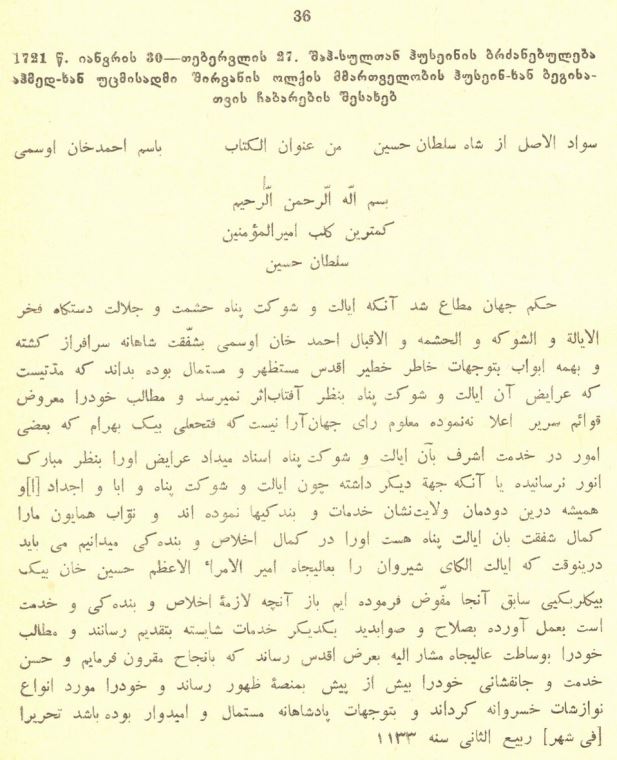 36
1721 წ. იანვრის 30—თებერვლის 27. შაჰ-სულთან ჰუსეინის ბრძანებულება
აჰმედ-ხან უცმისადმი შირვანის ოლქის მმართველობის ჰუსეინ-ხან ბეგისა-
თვის ჩაბარების შესახებ
سواد الاصل از شاه سلطان حسین من عنوان الکتاب باسم احمدخان اوسمی
بسم الّه الّرحمن الّرحیم
کمترین کلب امیرالمؤمنین
سلطان حسین
حکم جهان مطاع شد آنکه ایالت و شوکت پناه حشمت و جلالت دستکاه فخر
الایالة و الشوکه و الحشمه و الاقبال احمد خان اوسمی بشفّقت شاهانه سرافراز کشته
و بهمه ابواب بتوجهات خاطر خطیر اقدس مستظهر و مستمال بوده بداند که مدّتیست
که عرایض آن ایالت و شوکت پناه بنظر آفتاب‌اثر نمیرسد و مطالب خودرا معروض
قوائم سریر اعلا نه‌نموده معلوم رای جهان‌آرا نیست که فتحعلی بیک بهرام که بعضی
امور در خدمت اشرف بآن ایالت و شوکت پناه اسناد میداد عرایض اورا بنظر مبارک
انور نرسانیده یا آنکه جهة دیکر داشته چون ایالت و شوکت پناه و ابا و اجداد [ا]و
همیشه درین دودمان ولایت‌نشان خدمات و بندکیها نموده اند و نوّاب همایون مارا
کمال شفقت بان ایالت پناه هست اورا در کمال اخلاص و بنده‌کی میدانیم می باید
درینوقت که ایالت الکای شیروان را بعالیجاه امیر الامراء الاعظم حسین خان بیک
بیکلربکیی سابق آنجا مفّوض فرموده ایم باز آنچه لازمهٔ اخلاص و بنده‌کی و خدمت
است بعمل آورده بصلاح و صوابدید یکدیکر خدمات شایسته بتقدیم رسانند و مطالب
خودرا بوساطت عالیجاه مشار الیه بعرض اقدس رساند که بانجاح مقرون فرمایم و حسن
خدمت و جانفشانی خودرا بیش از پیش بمنصهٔ ظهور رساند و خودرا مورد انواع
نوازشات خسروانه کرداند و بتوجهات پادشاهانه مستمال و امیدوار بوده باشد تحریرا
[فی شهر] ربیع الثانی سنه ١١٣٣